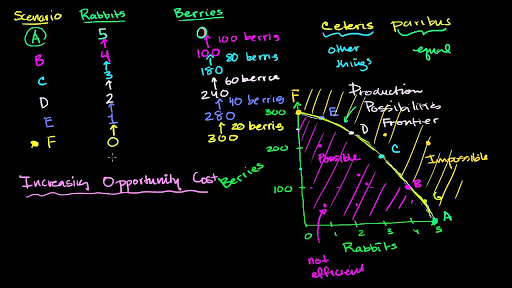 Scenario Rabbits Berries
A 5 0
100 berries
B 4 100
80 berries
C 3 180
60 berries
D 2 240
40 berries
E 1 280
20 berries
F 0 300
Increasing Opportunity Cost
Ceteris paribus
other things
equal
Production
Possibilities
Frontier
F
E
D
C
B
G
A
300
200
100
0 1 2 3 4 5
Berries
Rabbits
Possible
Impossible
not
efficient